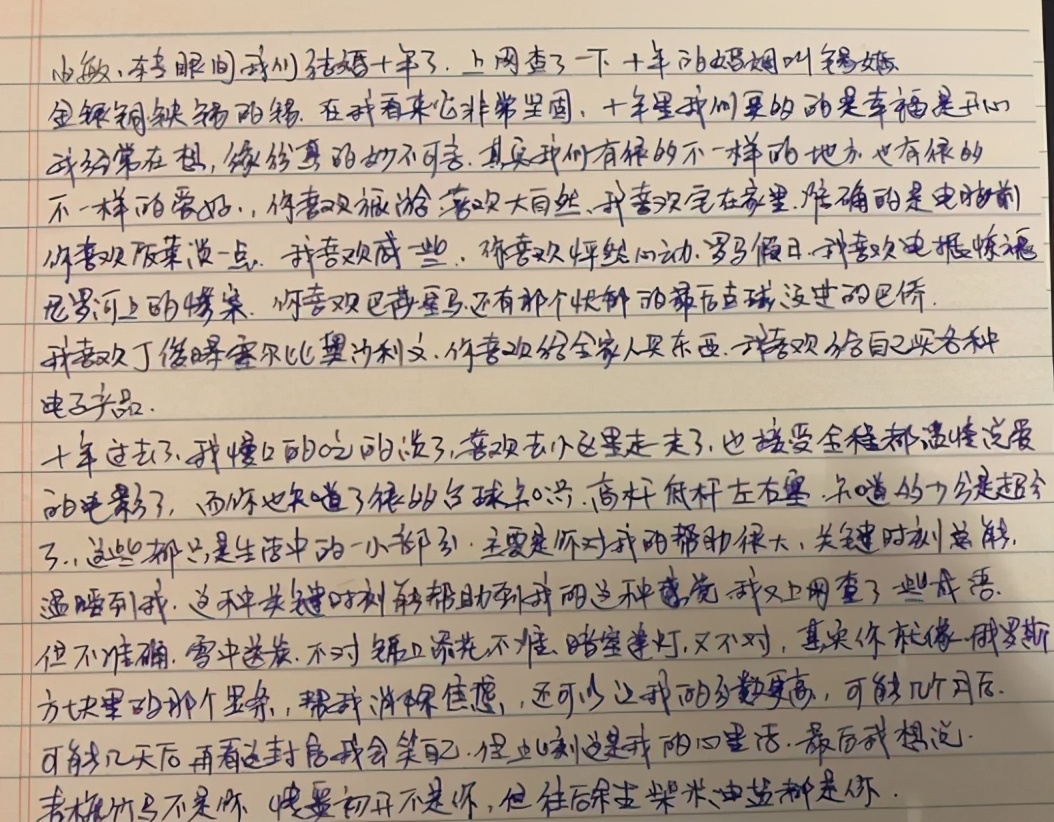 小敏、转眼间我们结婚十年了.上网查了一下十年的婚姻叫锡婚
金银铜铁锡的锡.在我看来它非常坚固,十年里我们更的的是幸福是开心
我经常在想,缘份真的妙不可言.其实我们有很的不一样的地方也有很的
不一样的爱好.,你喜欢旅游 喜欢大自然、我喜欢宅在家里.准确的是电脑前
你喜欢饭菜淡一点.我喜欢咸一些、你喜欢怦然心动.罗马假日.我喜欢电锯惊魂
尼罗河上的惨案.你喜欢巴蒂罗马.还有那个忧郁的最后点球没进的巴乔.
我喜欢丁俊晖塞尔比奥沙利文.你喜欢给全家人买东西.我喜欢给自己买各种
电子产品.
十年过去了.我慢口的吃的淡了,喜欢去小区里走一走了.也接受全程都温情说爱
的电影了,而你也知道了很的台球知识.高杆低杆左右塞.知道的少分是超分
了.,这些都只是生活中的一小部分.主要是你对我的帮助很大、关键时刻总能.
温暖到我.这种关键时刻能帮助到我的这种感觉.我又上网查了一些成语.
但不准确.雪中送炭.不对 锦上添花,不准.暗室逢灯,又不对,其实你就像俄罗斯
方块里的那个竖条,帮我消除焦虑,,还可以让我的分数更高,可能几个月后.
可能几天后再看这封信我会笑自己.但此刻这是我的心里话.最后我想说.
青梅竹马不是你 情窦初开不是你,但往后余生柴米油盐都是你.